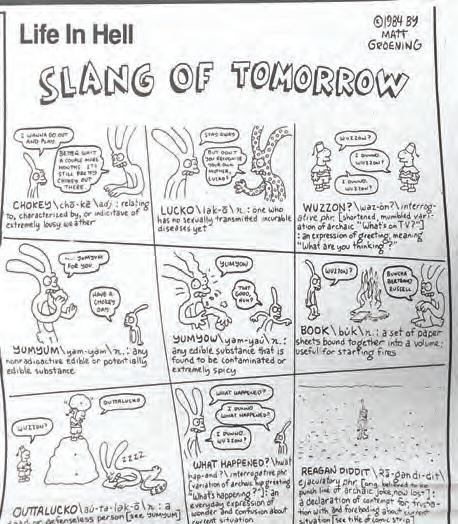 Life In Hell
©1984 BY
MATT
GROENING
SLANG OF TOMORROW
I WANNA GO OUT
AND PLAY.
BETTER WAIT
A COUPLE MORE
MONTHS. IT'S
STILL PRETTY
CHOKEY OUT
THERE.
CHOKEY \chō-kē\adj: relating
to, characterized by, or indicitave of
extremely lousy weather
STAY AWAY.
BUT DON'T
YOU RECOGNIZE
YOUR OWN
MOTHER,
LUCKO?
LUCKO \lək-ō\n.: one who
has no sexually transmitted incurable
diseases yet
WUZZON?
I DUNNO.
WUZZON?
I DUNNO.
WUZZON?
WUZZON? \wəz-ȯn?\interrog-
ative phr. [shortened, mumbled vari-
ation of archaic "What's on TV?"]
: an expression of greeting, meaning
"What are you thinking?"
YUMYUM
FOR YOU.
HAVE A
CHOKEY
DAY.
YUMYUM \yəm-yəm\n.: any
nonradioactive edible or potentially
edible substance
YUMYOW
THAT
GOOD,
HUH?
YUMYOW \yəm-yau̇\n.:
any edible substance that is
found to be contaminated or
extremely spicy
WUZZON?
BUNCHA
BERTRAND
RUSSELL
BOOK \bu̇k\n.: a set of paper
sheets bound together into a volume;
useful for starting fires
WUZZON?
OUTTALUCKO
ZZZZ
OUTTALUCKO \au̇-ta-lək-ō\n.: a
dead or defenseless person [see YUMYUM]
WHAT HAPPENED?
I DUNNO
WHAT HAPPENED?
I DUNNO.
WUZZON?
WHAT HAPPENED? \hwət
hap-ənd?\ interrogative phr
[variation of archaic hip greeting
"What's happening?"]: an
everyday expression of
wonder and confusion about
current situation
REAGAN DIDDIT \Rā-gən di-dit\
ejaculatory phr. [orig. believed to be
punch line of archaic joke, now lost]:
a declaration of contempt for, frustra-
tion with, and foreboding about current
situation [see the atomic strip]